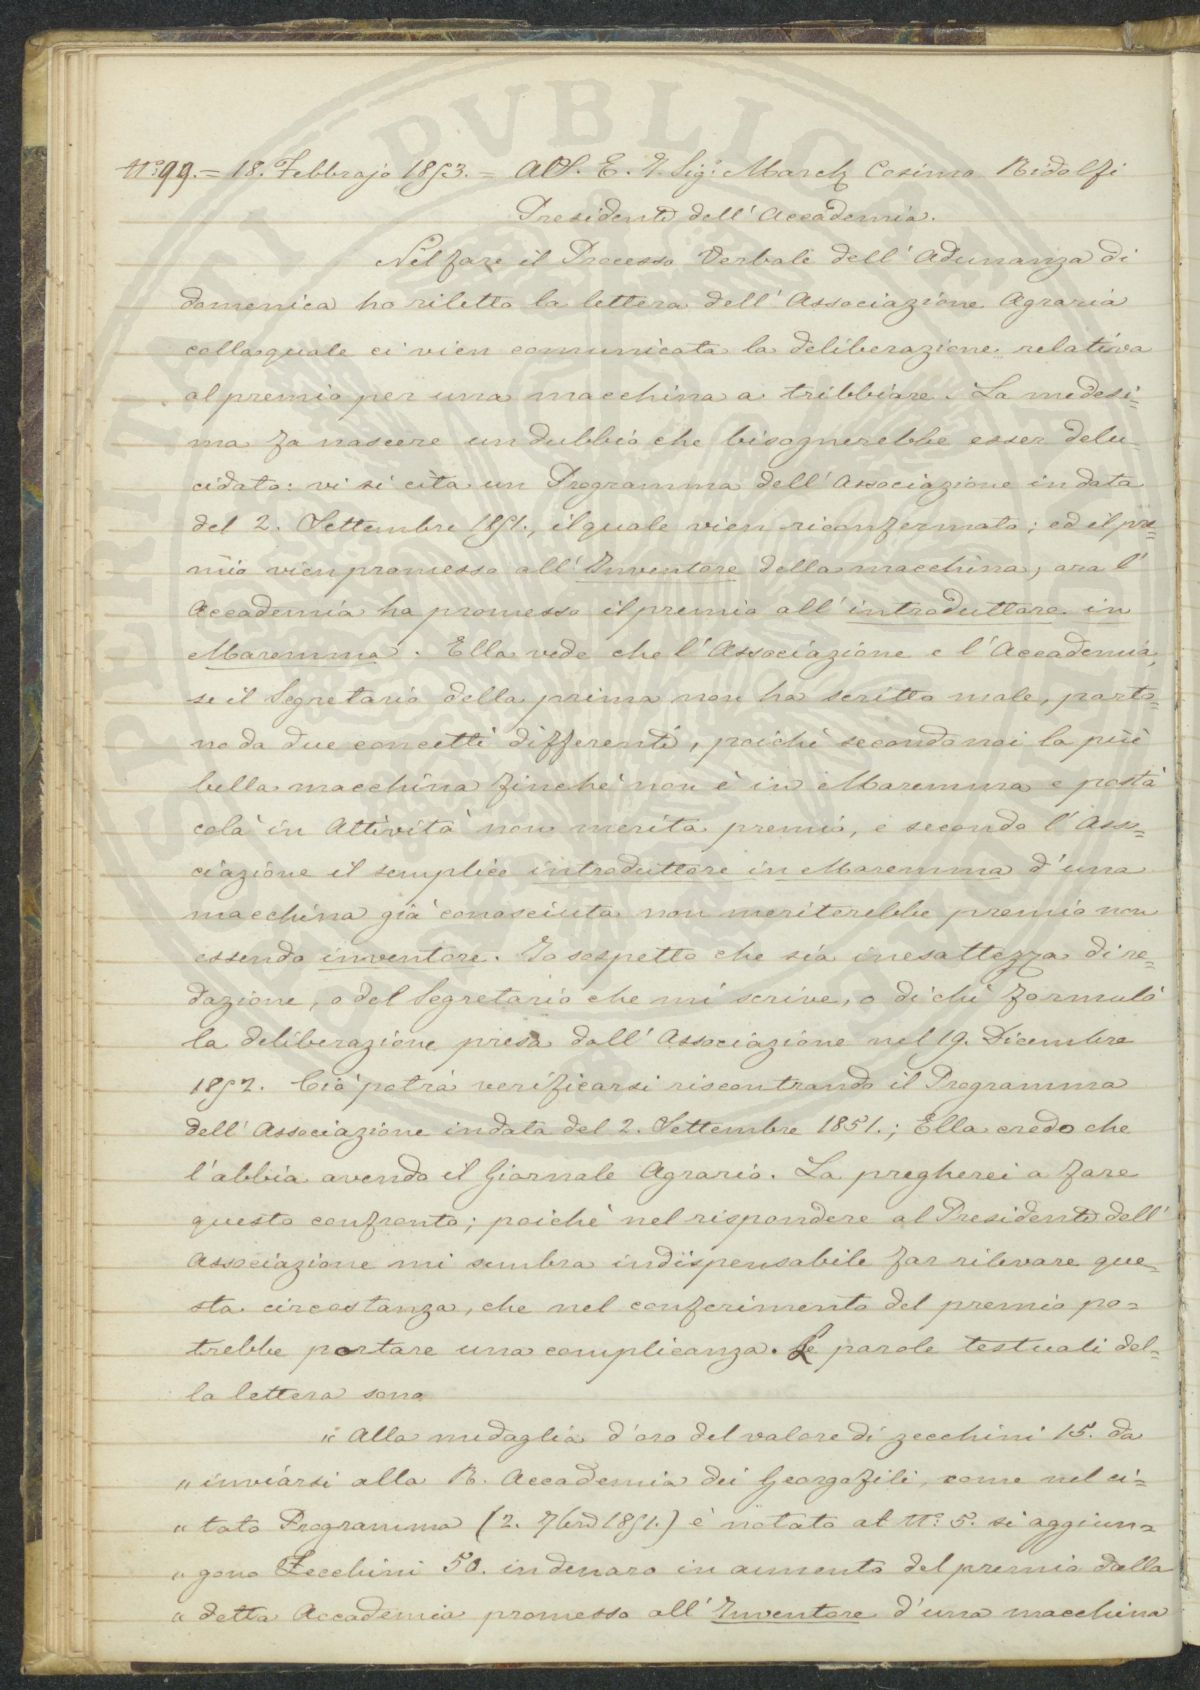 N.° 99. = 18. Febbrajo 1853. = All. E. I. Sig.r March. Cosimo Ridolfi
Presidente dell' Accademia.
Nel fare il Processo Verbale dell' Adunanza di
domenica ho riletto la lettera dell' Associazione Agraria
colla quale ci vien comunicata la deliberazione relativa
al premio per una macchina a tribbiare. La medesi=
ma fa nascere un dubbio che bisognerebbe esser delu=
cidato: vi si cita un Programma dell' Associazione in data
del 2. Settembre 1851., il quale vien riconfermato; ed il pre=
mio vien promesso all' Inventore della macchina, ora l'
Accademia ha promesso il premio all' introduttore in
Maremma. Ella vede che l' Associazione e l' Accademia,
se il Segretario della prima non ha scritto male, parto=
no da due concetti differenti, poichè secondo noi la più
bella macchina finchè non è in Maremma e posta
colà in Attività non merita premio, e secondo l' Asso=
ciazione il semplice introduttore in Maremma d' una
macchina già conosciuta non meriterebbe premio non
essendo inventore. Io sospetto che sia inesattezza di re=
dazione, o del Segretario che mi scrive, o di chi formulò
la deliberazione presa dall' Associazione nel 19. Dicembre
1852. Ciò potrà verificarsi riscontrando il Programma
dell' Associazione in data del 2. Settembre 1851.; Ella credo che
l' abbia avendo il Giornale Agrario. La pregherei a fare
questo confronto; poichè nel rispondere al Presidente dell'
Associazione mi sembra indispensabile far rilevare que=
sta circostanza, che nel conferimento del premio po=
trebbe portare una complicanza. Le parole testuali del=
la lettera sono
" Alla medaglia d' oro del valore di zecchini 15. da
" inviarsi alla R. Accademia dei Georgofili, come nel ci=
" tato Programma (2. 7bre 1851.) è notato al N.° 5. si aggiun=
" gono Zecchini 50. in denaro in aumento del premio dalla
" detta Accademia promesso all' Inventore d' una macchina
PVBLIC